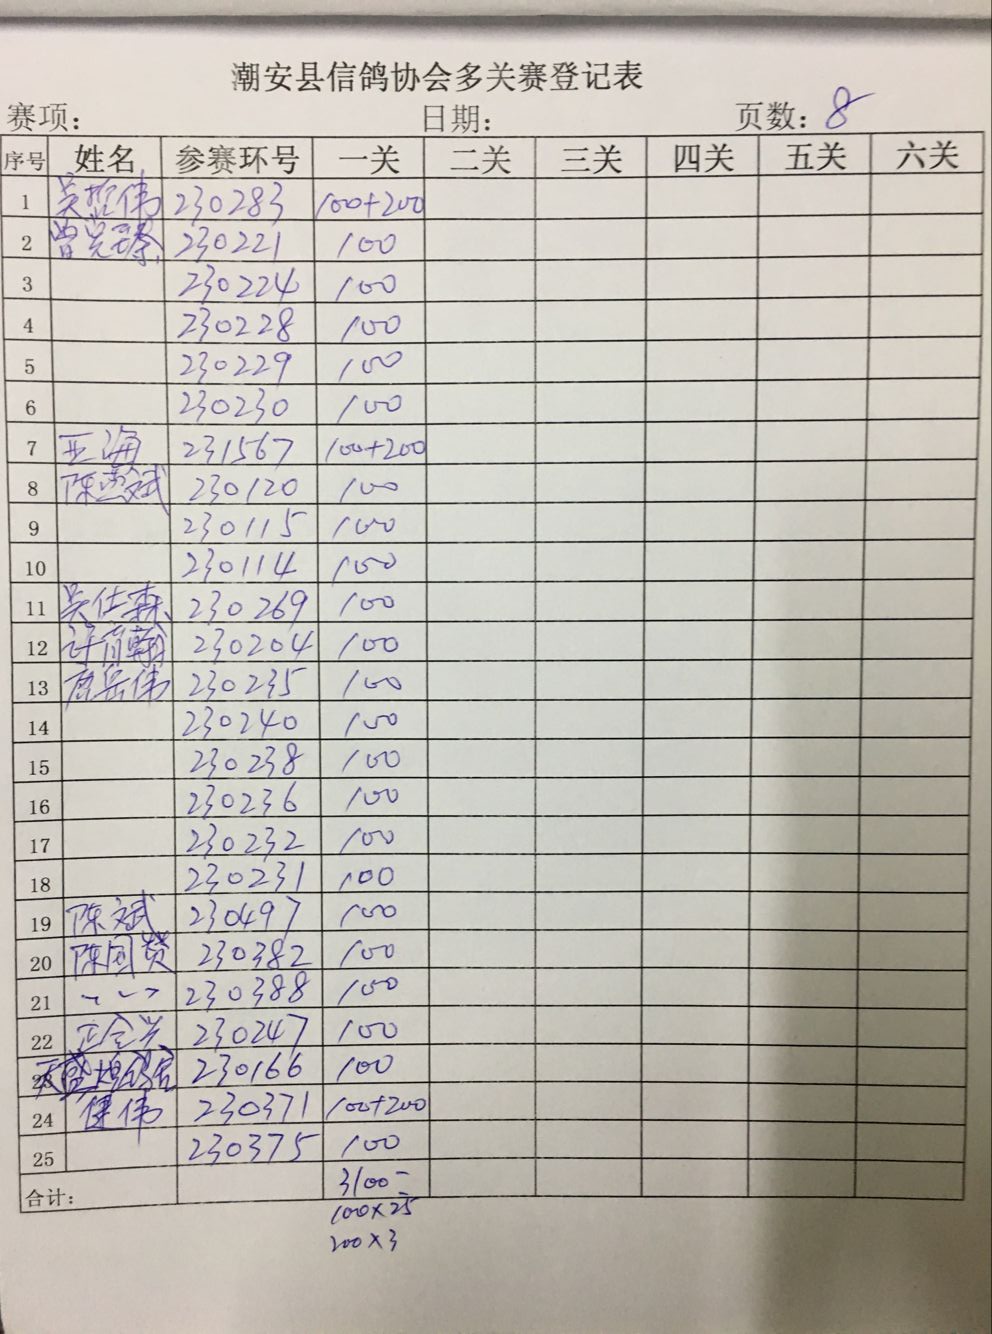 潮安县信鸽协会多关赛登记表
赛项: 日期: 页数: 8
序号 姓名 参赛环号 一关 二关 三关 四关 五关 六关
1 吴哲伟 230283 100+200
2 曾 230221 100
3 230224 100
4 230228 100
5 230229 100
6 230230 100
7 亚海 231567 100+200
8 陈 斌 230120 100
9 230115 100
10 230114 100
11 吴仕森 230269 100
12 许 230204 100
13 岳伟 230235 100
14 230240 100
15 230238 100
16 230236 100
17 230232 100
18 230231 100
19 陈斌 230497 100
20 陈国赞 230382 100
21 230388 100
22 230247 100
23 天盛 鸽舍 230166 100
24 健伟 230371 100+200
25 230375 100
合计: 3100-
100×25
200×3